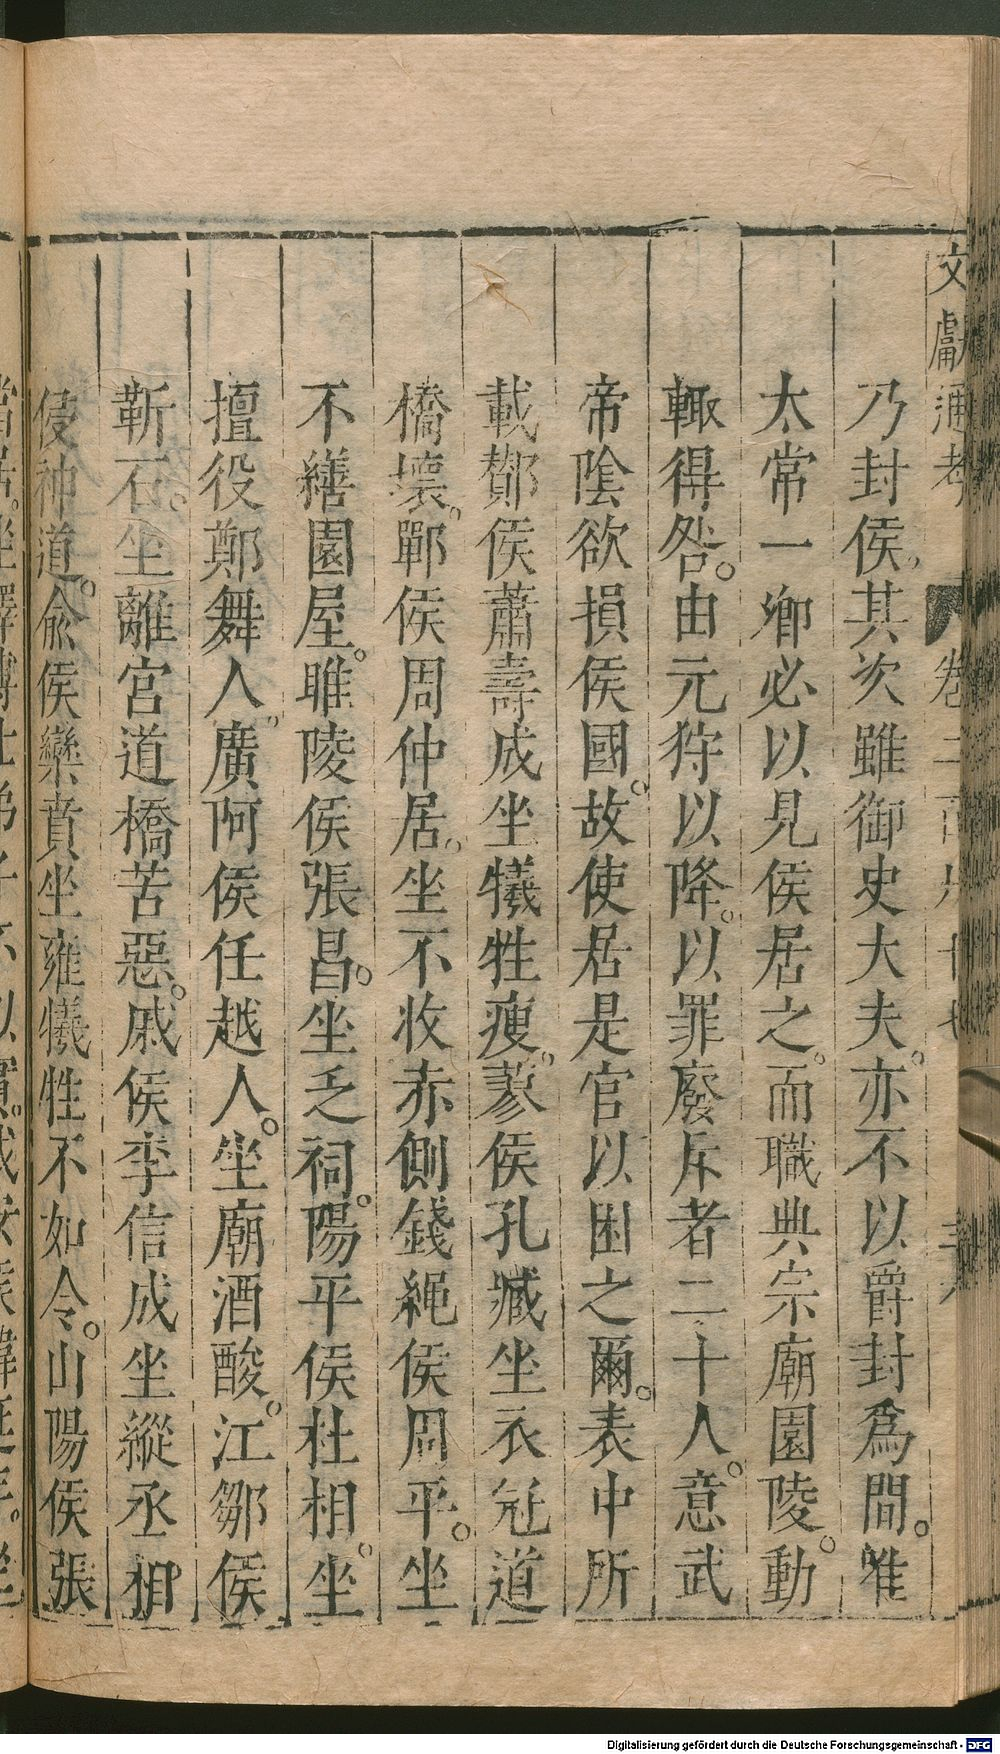 文獻通考
卷二百六十七
乃封侯其次雖御史大夫。亦不以爵封爲間。唯
太常一卿必以見侯居之。而職典宗廟園陵。動
輒得咎。由元狩以降。以罪廢斥者二十人。意武
帝陰欲損侯國。故使居是官以困之爾。表中所
載酇侯蕭壽成坐犧牲瘦。蓼侯孔臧坐衣冠道
橋壞。鄲侯周仲居。坐不收赤側錢繩侯周平。坐
不繕園屋。睢陵侯張昌。坐乏祠。陽平侯杜相。坐
擅役鄭舞人。廣阿侯任越人。坐廟酒酸。江鄒侯
靳石。坐離宮道橋苦惡。戚侯李信成坐縱丞相
侵神道。俞侯欒賁坐雍犧牲不如令。山陽侯張
當居。坐擇博士弟子不以實。成安侯韓延年。坐
Digitalisierung gefördert durch die Deutsche Forschungsgemeinschaft - DFG